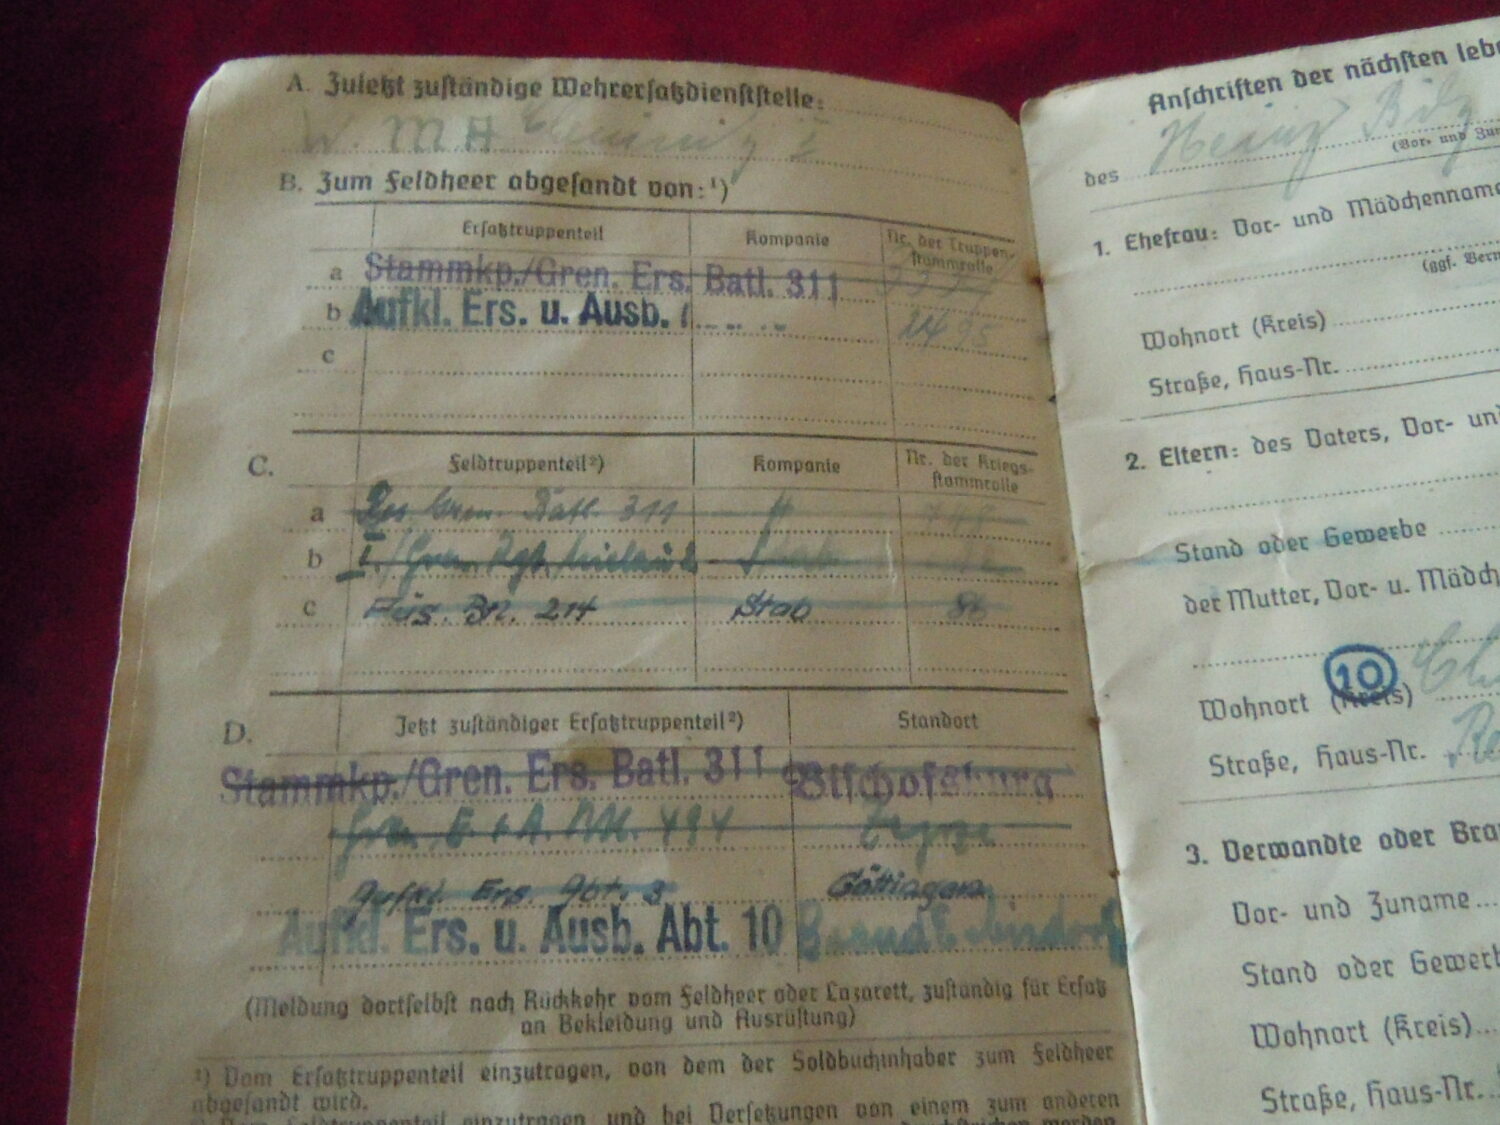 A. Zuletzt zuständige Wehrersatzdienststelle:
W. M A Chemnitz I
B. Zum Feldheer abgesandt von: ¹)
Ersatztruppenteil Kompanie Nr. der Truppen-
stammrolle
a Stammkp./Gren. Ers. Batl. 311
b Aufkl. Ers. u. Ausb. 2495
c
C. Feldtruppenteil ²) Kompanie Nr. der Kriegs-
stammrolle
a Res. Gren. Batl. 311
b I./Gren. Rgt.
c Füs. Btl. 214 Stab 86
D. Jetzt zuständiger Ersatztruppenteil ²) Standort
Stammkp./Gren. Ers. Batl. 311 Bischofsburg
Gren. E. A. Btl. 494
Aufkl. Ers. Abt. 3 Göttingen
Aufkl. Ers. u. Ausb. Abt. 10
(Meldung dortselbst nach Rückkehr vom Feldheer oder Lazarett, zuständig für Ersatz
an Bekleidung und Ausrüstung)
¹) Vom Ersatztruppenteil einzutragen, von dem der Soldbuchinhaber zum Feldheer
abgesandt wird.
einzutragen und bei Versetzungen von einem zum anderen
Anschriften der nächsten lebe
des Heinz
(Vor- und Zun
1. Ehefrau: Vor- und Mädchenname
(ggf. Verm
Wohnort (Kreis)
Straße, Haus-Nr.
2. Eltern: des Vaters, Vor- un
Stand oder Gewerbe
der Mutter, Vor- u. Mädch
10
Wohnort (Kreis) Ch
Straße, Haus-Nr. Re
3. Verwandte oder Bra
Vor- und Zuname
Stand oder Gewerb
Wohnort (Kreis)
Straße, Haus-Nr.